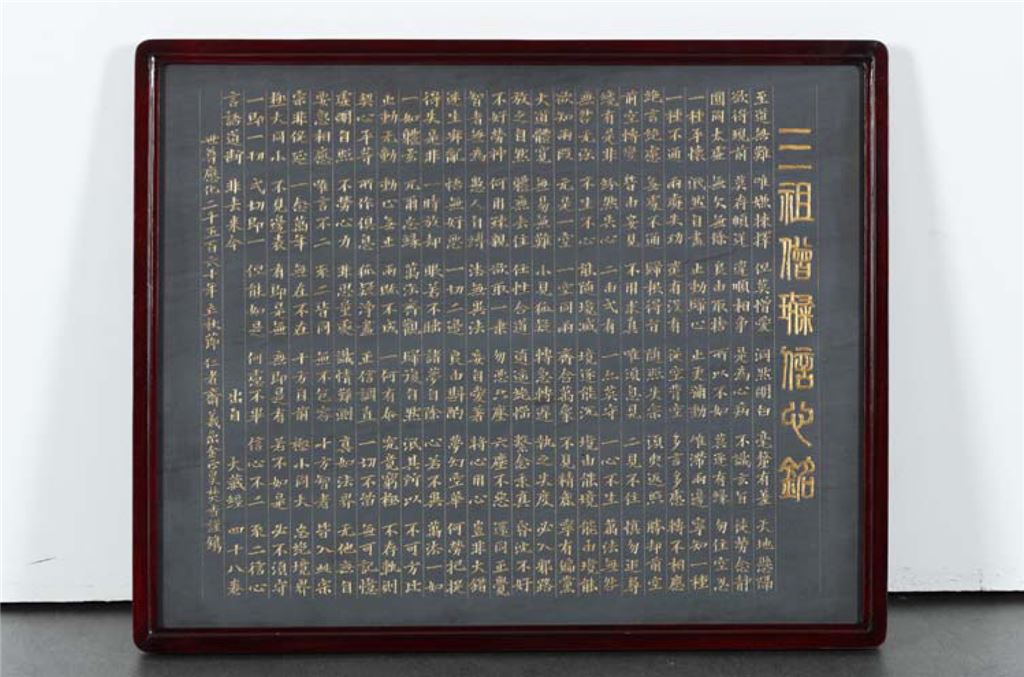 三祖僧璨信心銘
至道無難 唯嫌揀擇 但莫憎愛 洞然明白 毫釐有差 天地懸隔
欲得現前 莫存順逆 違順相爭 是為心病 不識玄旨 徒勞念靜
圓同太虛 無欠無餘 良由取捨 所以不如 莫逐有緣 勿住空忍
一種平懷 泯然自盡 止動歸止 止更彌動 惟滯兩邊 寧知一種
一種不通 兩處失功 遣有沒有 從空背空 多言多慮 轉不相應
絕言絕慮 無處不通 歸根得旨 隨照失宗 須臾返照 勝却前空
前空轉變 皆由妄見 不用求真 唯須息見 二見不住 慎勿追尋
纔有是非 紛然失心 二由一有 一亦莫守 一心不生 萬法無咎
無咎无法 不生不心 能隨境滅 境逐能沉 境由能境 能由境能
欲知兩段 元是一空 一空同兩 齊含萬象 不見精麁 寧有偏黨
大道體寬 無易無難 小見狐疑 轉急轉遲 執之失度 必入邪路
放之自然 體無去住 任性合道 逍遙絕惱 繫念乖真 昏沈不好
不好勞神 何用疎親 欲取一乘 勿惡六塵 六塵不惡 還同正覺
智者無為 愚人自縛 法無異法 妄自愛著 將心用心 豈非大錯
迷生寂亂 悟無好惡 一切二邊 良由斟酌 夢幻空華 何勞把捉
得失是非 一時放却 眼若不睡 諸夢自除 心若不異 萬法一如
一如體玄 兀爾忘緣 萬法齊觀 歸復自然 泯其所以 不可方比
止動无動 動止無止 兩既不成 一何有爾 究竟窮極 不存軌則
契心平等 所作俱息 狐疑淨盡 正信調直 一切不留 無可記憶
虛明自照 不勞心力 非思量處 識情難測 真如法界 无他無自
要急相應 唯言不二 不二皆同 無不包容 十方智者 皆入此宗
宗非促延 一念萬年 無在不在 十方目前 極小同大 忘絕境界
極大同小 不見邊表 有即是無 無即是有 若不如是 必不須守
一即一切 一切即一 但能如是 何慮不畢 信心不二 不二信心
言語道斷 非去來今 出自 大藏經 四十八卷
世尊應化二千五百六十年立秋節 仁者齋